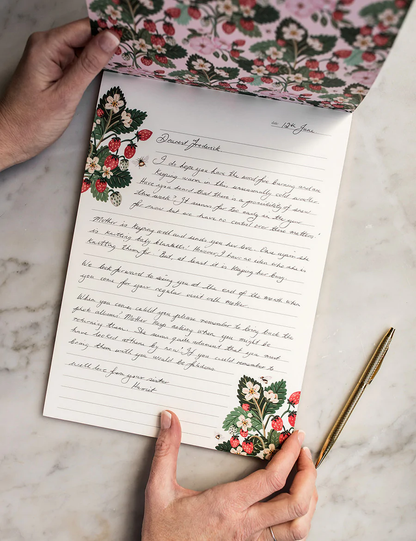 12th June
Dearest Frederick
I do hope you have the wood fire burning and are
keeping warm in this unseasonably cold winter.
Have you heard that there is a possibility of snow
this week? It seems far too early in the year
for snow but we have no control over these matters.
Mother is keeping well and sends you her love. Once again she
is knitting baby blankets. However I have no idea who she is
knitting them for. But, at least it is keeping her busy.
We look forward to seeing you at the end of the month when
you come for your regular visit with mother.
When you come could you please remember to bring back the
photo albums? Mother keeps asking when you might be
returning them. She seems quite adamant that you must
have looked at them by now. If you could remember to
bring them with you would be
with love from your sister
Harriet